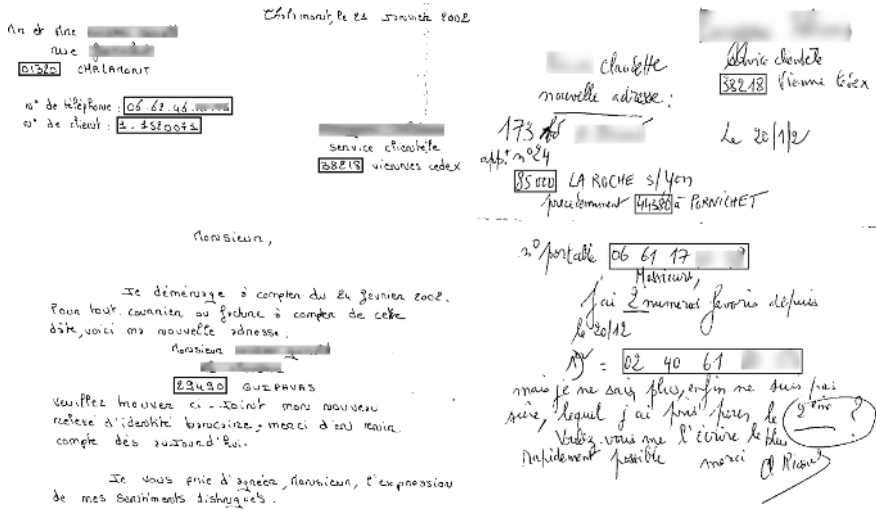 Chalamont, le 21 Janvier 2002
Mr et Mme
rue
01320 CHALAMONT
n° de téléphone : 06.62.46.
n° de client : 1.1520071
service clientèle
38218 viennes cedex
Monsieur,
Je déménage à compter du 24 février 2002.
Pour tout courrier ou facture à compter de cette
date, voici ma nouvelle adresse :
Monsieur
29490 GUIPAVAS
veuillez trouver ci-joint mon nouveau
relevé d'identité bancaire, merci d'en tenir
compte dès aujourd'hui.
Je vous prie d'agréer, Monsieur, l'expression
de mes sentiments distingués.
Claudette
nouvelle adresse :
Service clientèle
38218 Vienne Cedex
173
app.t n°24
Le 20/1/2
85000 LA ROCHE s/Yon
précedemment 44380 à PORNICHET
n° portable 06 61 17
Messieurs,
J'ai 2 numeros favoris depuis
le 20/12
1) = 02 40 61
mais je ne sais plus, enfin ne suis pas
sûre, lequel j'ai pris pour le 2ème ?
Voulez-vous me l'écrire le plus
rapidement possible merci